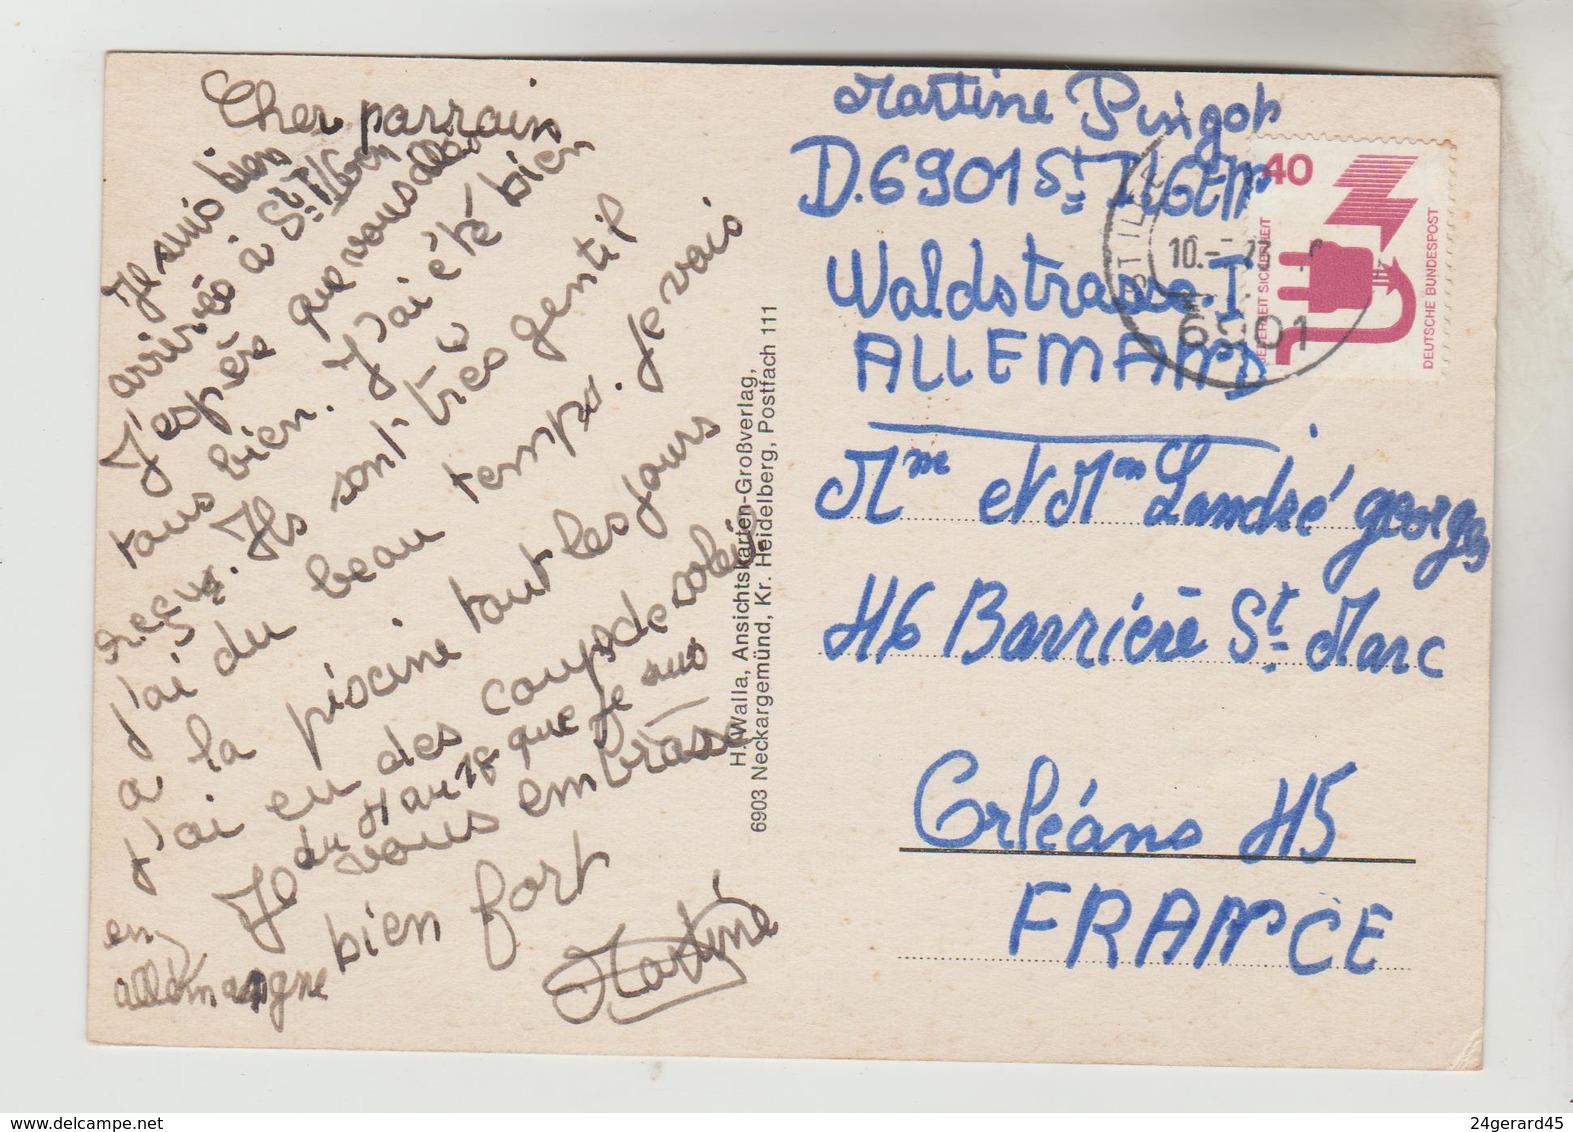 Cher parrain
Je suis bien
arrivée à St Ilgen
J'espère que vous allez
tous bien. J'ai été bien
reçue. Ils sont très gentil
j'ai du beau temps. Je vais
a la piscine tout les jours
J'ai eu des coups de soleil
du 4 au 18 que je suis
en
allemangne
Je vous embrasse
bien fort
Martine
H. Walla, Ansichtskarten-Großverlag,
6903 Neckargemünd, Kr. Heidelberg, Postfach 111
Martine
D.6901 St Ilgen
Waldstrasse.1
ALLEMAND
40
JEDERZEIT SICHERHEIT
DEUTSCHE BUNDESPOST
ST ILGEN
10.
6901
Mme et Mon Landré georges
46 Barrière St Marc
Orléans 45
FRANCE
24gerard45